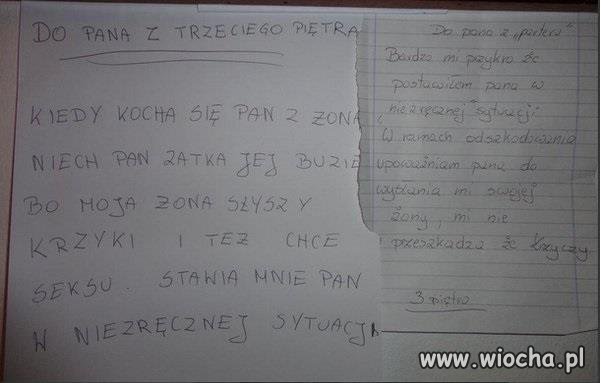 DO PANA Z TRZECIEGO PIĘTRA
KIEDY KOCHA SIĘ PAN Z ŻONĄ
NIECH PAN ZATKA JEJ BUZIE
BO MOJA ŻONA SŁYSZY
KRZYKI I TEZ CHCE
SEKSU. STAWIA MNIE PAN
W NIEZRĘCZNEJ SYTUACJI
Do pana z „parteru"
Bardzo mi przykro że
postawiłem pana w
„niezręcznej sytuacji"
W ramach odszkodowania
upoważniam pana do
wysłania mi swojej
żony, mi nie
przeszkadza że krzyczy
3 piętro
www.wiocha.pl